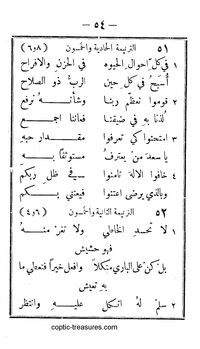 — ٥٤ —
٥١ الترنيمة الحادية والخمسون (٦و٨)
١ في كل احوال الحيوه في الحزن والافراح
أسبح في كل حين الرب ذو الصلاح
٢ قوموا نعظم ربنا وشأنه نرفع
لذنا به في ضيقنا فعاننا اجمع
٣ امتحنوا كي تعرفوا مقدار حبه
يا سعد من يعترف مستوثقا به
٤ خافوا الاله تامنوا في ظل ربكم
وبالذي يرضى اعتنوا فيعتني بكم
٥٢ الترنيمة الثانية والخمسون (٤و٦)
١ لا تحسد الخاطي ولا تغر منه
فهو حشيش
بل كن على الباري متكلا وافعل خيرا فتعطي ما
به تعيش
٢ سلم له اتكل عليه وانتظر
coptic-treasures.com